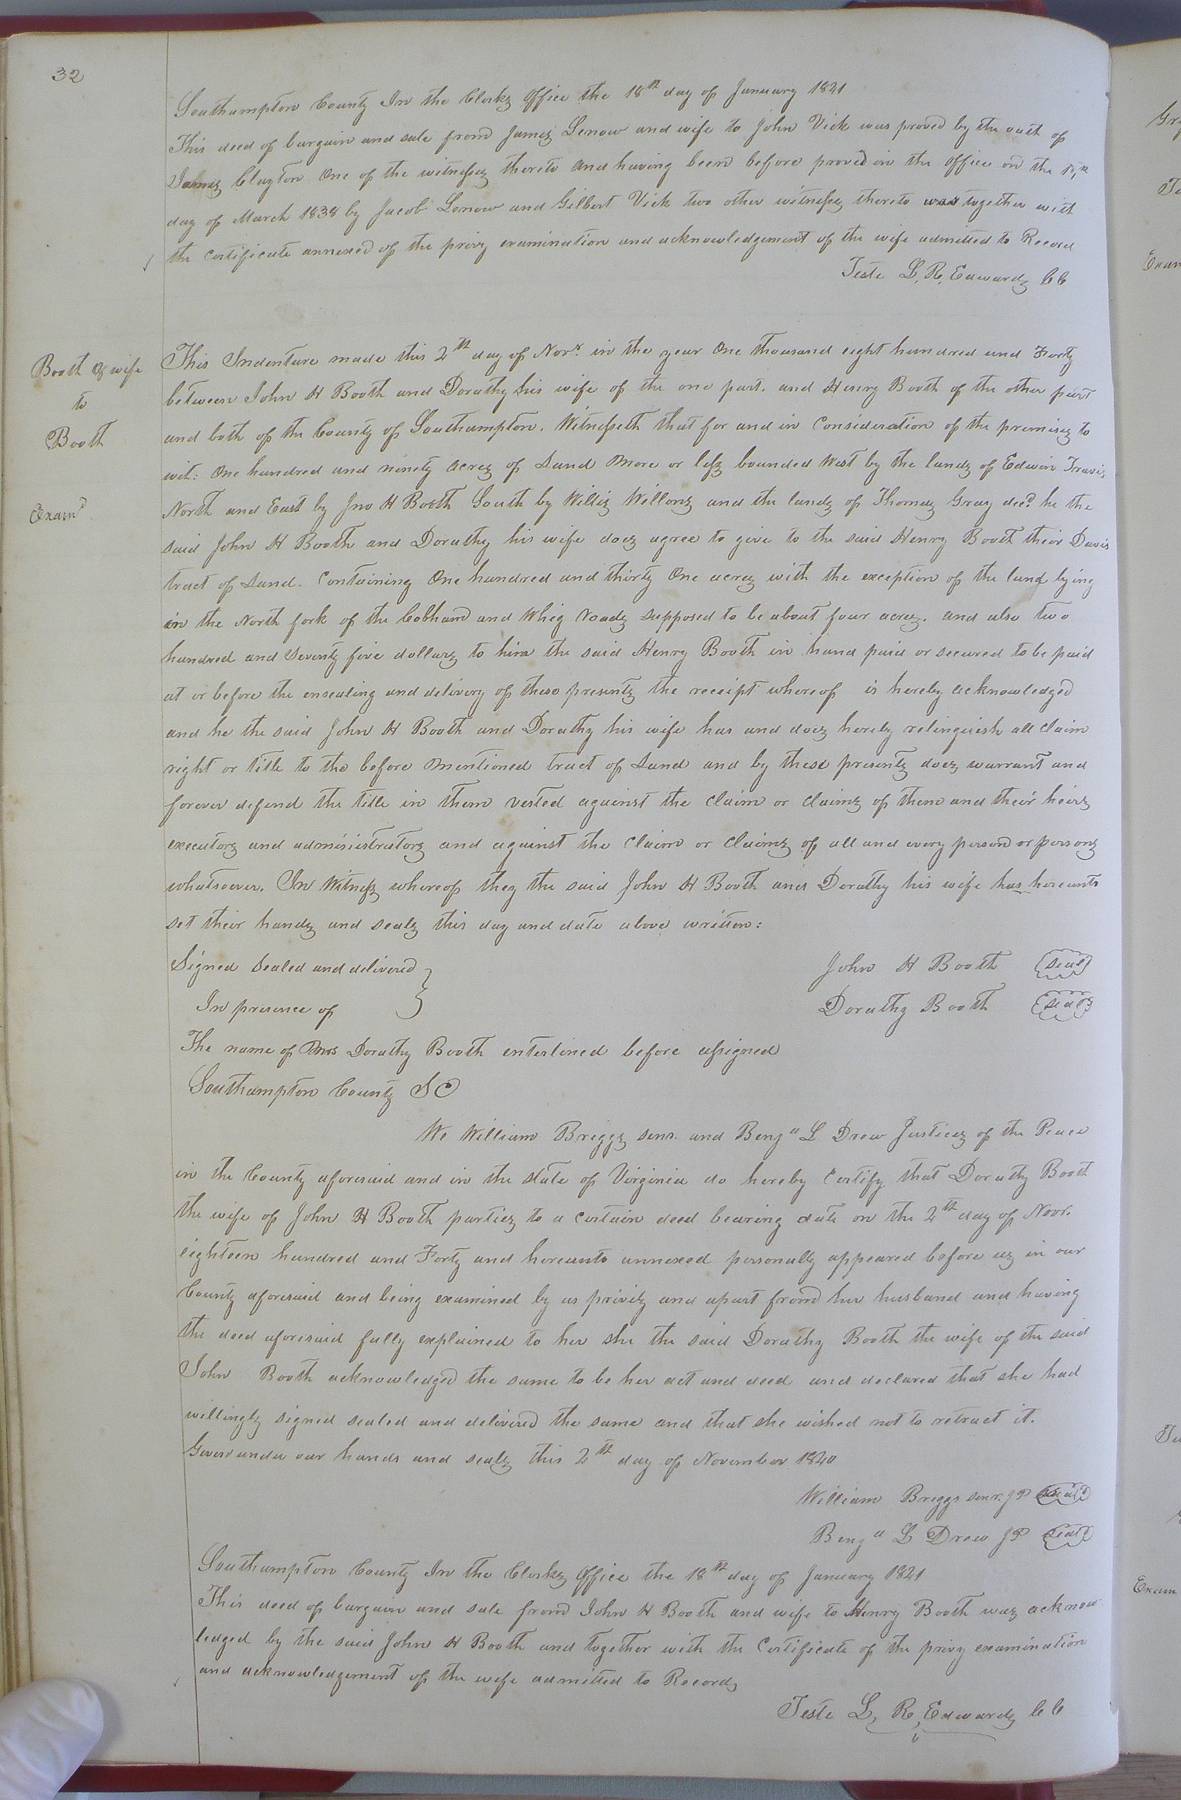 32
Southampton County In the Clerks Office the 18th day of January 1841
This deed of bargain and sale from James Lenow and wife to John Vick was proved by the oath of
James Clayton One of the witnesses thereto and having been before proved in the office on the
day of March 1838 by Jacob Lenow and Gilbert Vick two other witnesses thereto was together with
the certificate annexed of the privy examination and acknowledgement of the wife admitted to Record
Teste L. R. Edwards CC
Booth & wife
to
Booth
Examd
This Indenture made this 2th day of Novr. in the year One thousand eight hundred and Forty
between John H Booth and Dorathy his wife of the one part. and Henry Booth of the other part
and both of the County of Southampton. Witnesseth that for and in Consideration of the premises to
wit: One hundred and ninety acres of Land More or less bounded West by the lands of Edwin Travis,
North and East by Jno H Booth South by Willis Willons and the lands of Thomas Gray decd. he the
said John H Booth and Dorathy his wife does agree to give to the said Henry Booth their Davis
tract of Land. Containing One hundred and thirty One acres with the exception of the land lying
in the North fork of the Cobham and Whig roads supposed to be about four acres. and also two
hundred and Seventy five dollars to him the said Henry Booth in hand paid or secured to be paid
at or before the ensealing and delivery of these presents the receipt whereof is hereby acknowledged
and he the said John H Booth and Dorathy his wife has and does hereby relinquish all claim
right or title to the before mentioned tract of Land and by these presents does, warrant and
forever defend the title in them vested against the claim or claims of them and their heirs
executors and administrators and against the claim or claims of all and every person or persons
whatsoever. In Witness whereof they the said John H Booth and Dorathy his wife has hereunto
set their hands and seals this day and date above written:
Signed Sealed and delivered
In presence of
John H Booth (seal)
Dorathy Booth (seal)
The name of Mrs Dorathy Booth enterlined before assigned
Southampton County SC
We William Briggs senr. and Benja L Drew Justices of the Peace
in the County aforesaid and in the State of Virginia do hereby Certify that Dorathy Booth
the wife of John H Booth parties to a certain deed bearing date on the 2th day of Novr.
eighteen hundred and Forty and hereunto annexed personally appeared before us in our
County aforesaid and being examined by us privily and apart from her husband and having
the deed aforesaid fully explained to her she the said Dorathy Booth the wife of the said
John Booth acknowledged the same to be her act and deed and declared that she had
willingly signed sealed and delivered the same and that she wished not to retract it.
Given under our hands and seals this 2th day of November 1840
William Briggs senr. JP (seal)
Benja L Drew JP (seal)
Southampton County In the Clerks Office the 18th day of January 1841
This deed of bargain and sale from John H Booth and wife to Henry Booth was acknow
ledged by the said John H Booth and together with the Certificate of the privy examination
and acknowledgement of the wife admitted to Record,
Teste L, R, Edwards CC